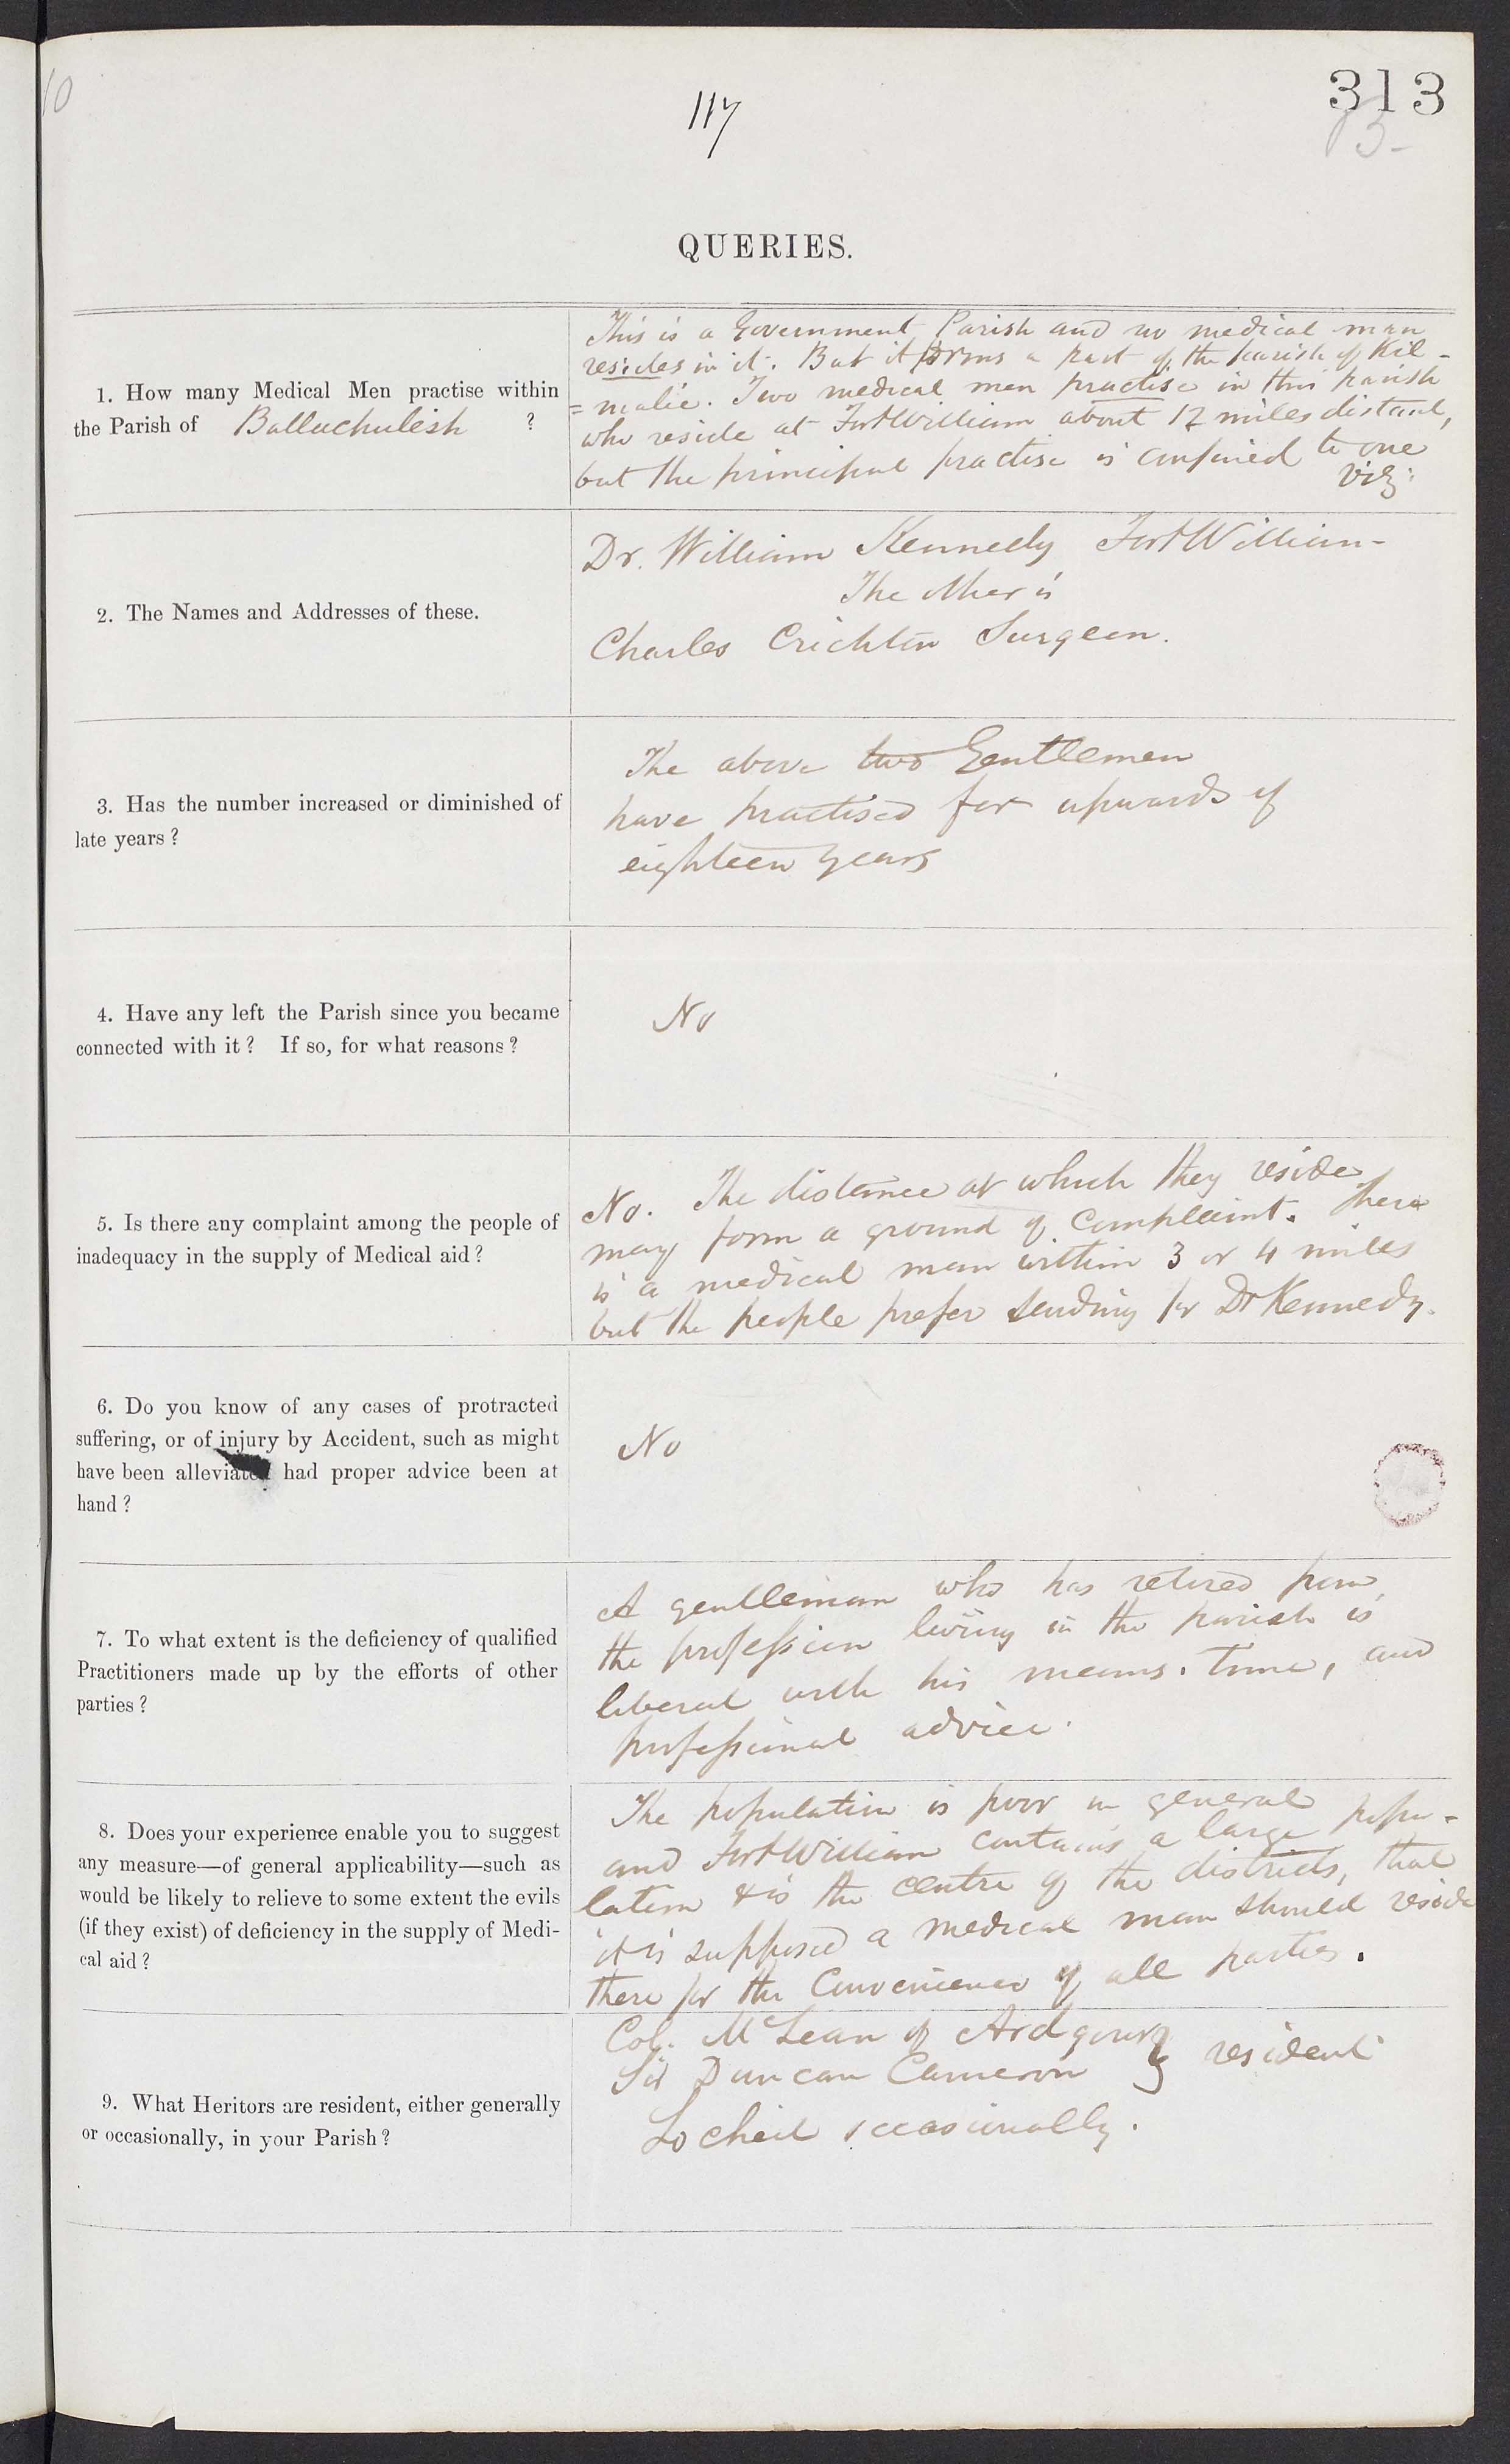 10
117
313
13-
QUERIES.
1. How many Medical Men practise within
the Parish of Ballachulish ?
This is a Government Parish and no medical man
resides in it. But it forms a part of the parish of Kil-
=malie. Two medical men practise in this parish
who reside at FortWilliam about 12 miles distant,
but the principal practise is confined to one
viz:
2. The Names and Addresses of these.
Dr. William Kennedy FortWilliam-
The other is
Charles Crichton Surgeon.
3. Has the number increased or diminished of
late years ?
The above two Gentlemen
have practised for upwards of
eighteen years
4. Have any left the Parish since you became
connected with it ? If so, for what reasons ?
No
5. Is there any complaint among the people of
inadequacy in the supply of Medical aid ?
No. The distance at which they reside
may form a ground of Complaint. There
is a medical man within 3 or 4 miles
but the people prefer sending for Dr Kennedy.
6. Do you know of any cases of protracted
suffering, or of injury by Accident, such as might
have been alleviated had proper advice been at
hand ?
No
7. To what extent is the deficiency of qualified
Practitioners made up by the efforts of other
parties ?
A gentleman who has retired from
the profession living in the parish is
liberal with his means. time, and
professional advice.
8. Does your experience enable you to suggest
any measure—of general applicability—such as
would be likely to relieve to some extent the evils
(if they exist) of deficiency in the supply of Medi-
cal aid ?
The population is poor in general
and FortWilliam contains a large popu-
lation & is the centre of the districts, that
it is supposed a medical man should reside
there for the Convenience of all parties.
9. What Heritors are resident, either generally
or occasionally, in your Parish ?
Col. McLean of Ardgour
Sir Duncan Cameron } resident
Locheil occasionally.